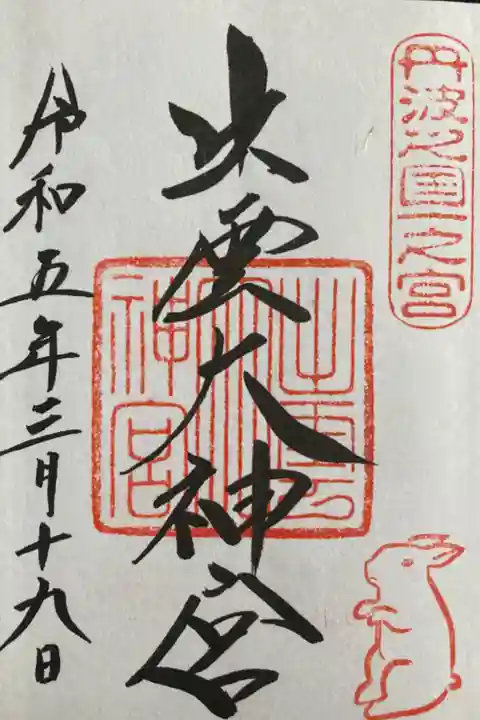 丹波之国一之宮
出雲大神宮
出雲大神宮
令和五年三月十九日